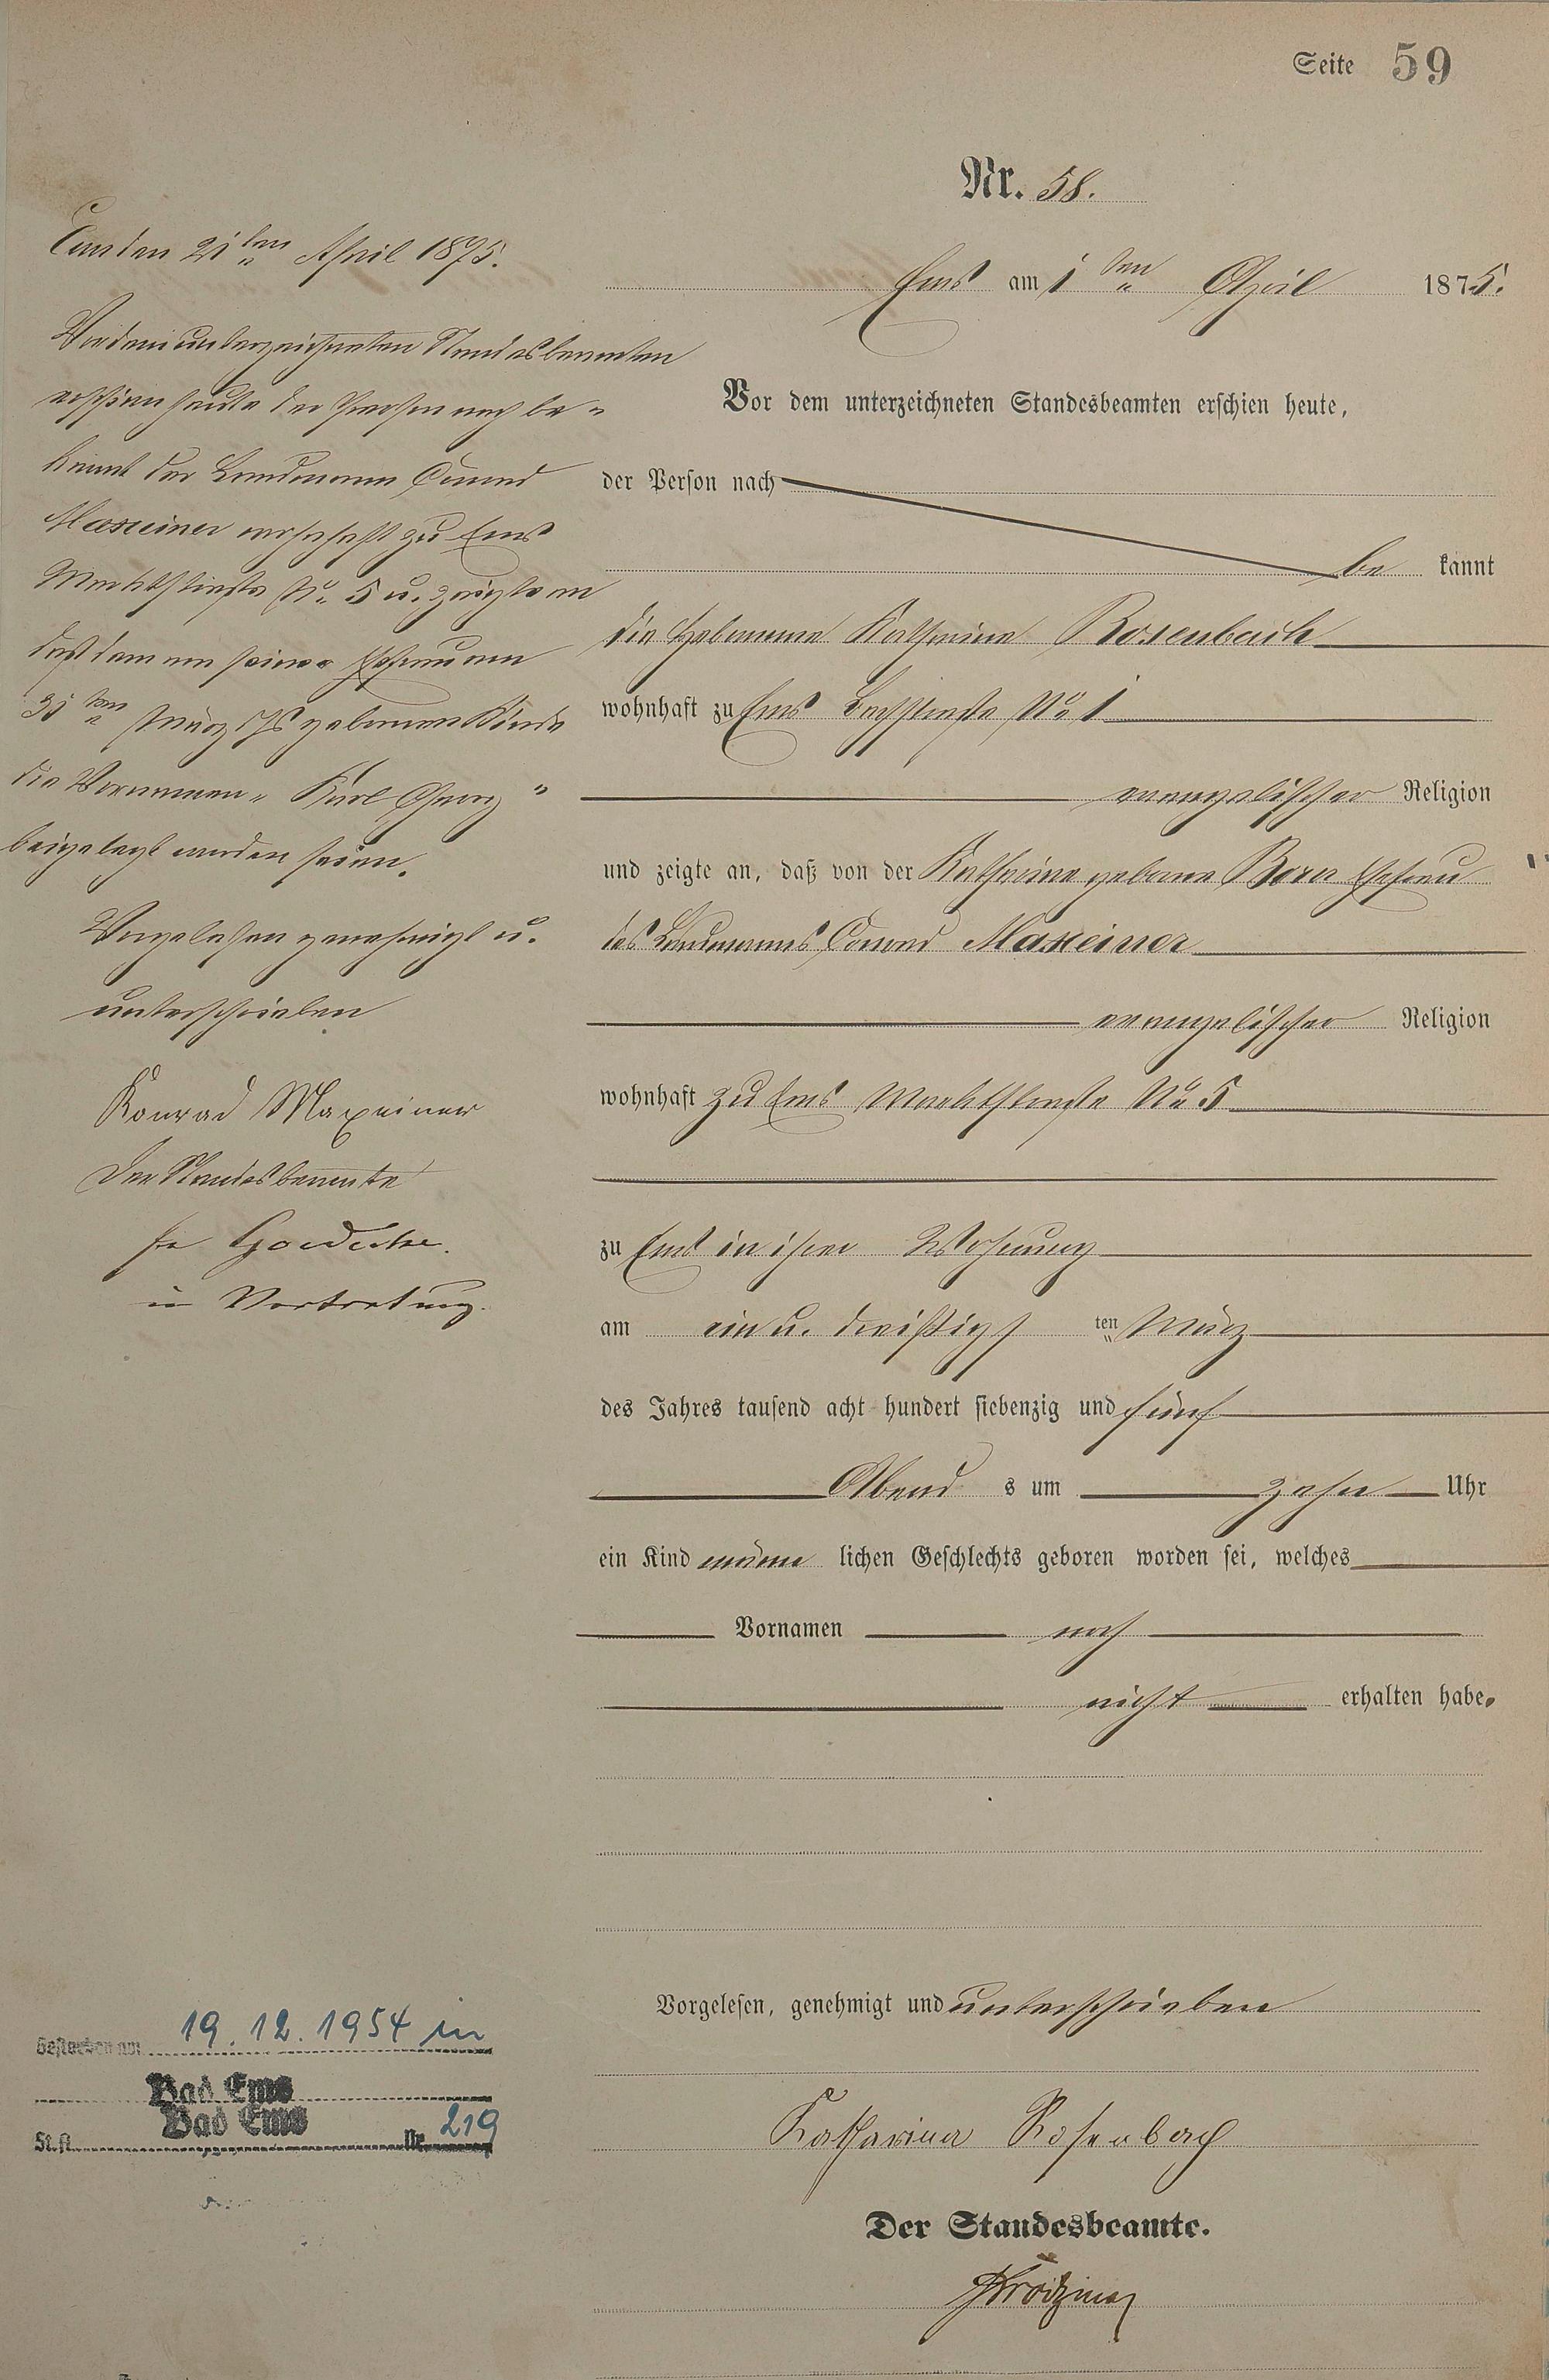 Seite 59
Nr. 58.
Ems am 1ten April 1875.
Vor dem unterzeichneten Standesbeamten erschien heute,
der Person nach
be kannt
die Hebamme Katharina Rosenbach
wohnhaft zu Ems No 1
evangelischer Religion
und zeigte an, daß von der Katharina geborne Born Ehefrau
des Landmannes Conrad Maxeiner
evangelischer Religion
wohnhaft zu Ems Marktstraße No 5
zu Ems in ihrer Wohnung
am ein u. dreißigs ten März
des Jahres tausend acht hundert siebenzig und fünf
Abend s um zehn Uhr
ein Kind männ lichen Geschlechts geboren worden sei, welches
Vornamen noch
nicht erhalten habe.
Vorgelesen, genehmigt und unterschrieben
Katharina Rosenbach
Der Standesbeamte.
Ems den 21ten April 1875.
Vor dem unterzeichneten Standesbeamten
erschien heute der Person nach be-
kannt der Landmann Conrad
Maxeiner wohnhaft zu Ems
Marktstraße No 5 u. zeigte an
daß dem von seiner Ehefrau am
31ten März geborenen Kinde
die Vornamen "Karl Georg"
beigelegt worden seien.
Vorgelesen genehmigt u.
unterschrieben
Konrad Maxeiner
Der Standesbeamte
in Vertretung.
Gestorben am 19.12.1954 in
Bad Ems
St.A. Bad Ems Nr. 219